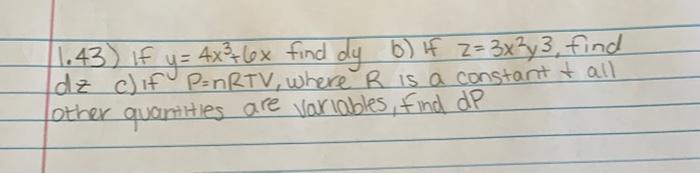 1.43) If y = 4x³+6x find dy b) if z = 3x²y3, find
dz c) if P=nRTV, where R is a constant + all
other quantities are variables, find dP